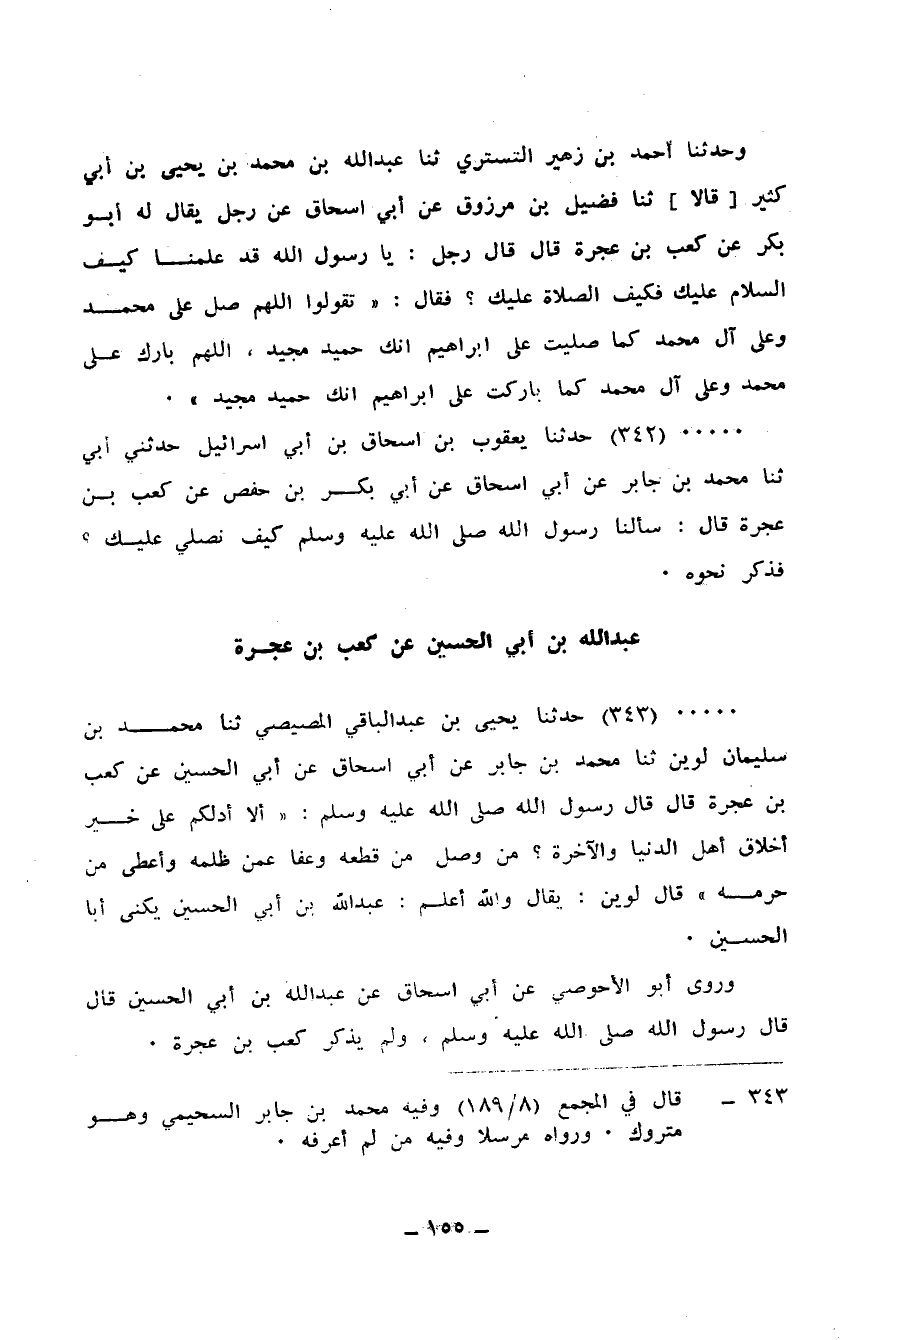 وحدثنا أحمد بن زهير التستري ثنا عبدالله بن محمد بن يحيى بن أبي
كثير [ قالا ] ثنا فضيل بن مرزوق عن أبي اسحاق عن رجل يقال له أبو
بكر عن كعب بن عجرة قال قال رجل : يا رسول الله قد علمنا كيف
السلام عليك فكيف الصلاة عليك ؟ فقال : « تقولوا اللهم صل على محمد
وعلى آل محمد كما صليت على ابراهيم انك حميد مجيد ، اللهم بارك على
محمد وعلى آل محمد كما باركت على ابراهيم انك حميد مجيد » ٠
٠٠٠٠٠ (٣٤٢) حدثنا يعقوب بن اسحاق بن أبي اسرائيل حدثني أبي
ثنا محمد بن جابر عن أبي اسحاق عن أبي بكر بن حفص عن كعب بن
عجرة قال : سألنا رسول الله صلى الله عليه وسلم كيف نصلي عليك ؟
فذكر نحوه ٠
عبدالله بن أبي الحسين عن كعب بن عجرة
٠٠٠٠٠ (٣٤٣) حدثنا يحيى بن عبدالباقي المصيصي ثنا محمد بن
سليمان لوين ثنا محمد بن جابر عن أبي اسحاق عن أبي الحسين عن كعب
بن عجرة قال قال رسول الله صلى الله عليه وسلم : « ألا أدلكم على خير
أخلاق أهل الدنيا والآخرة ؟ من وصل من قطعه وعفا عمن ظلمه وأعطى من
حرمه » قال لوين : يقال والله أعلم : عبدالله بن أبي الحسين يكنى أبا
الحسين ٠
وروى أبو الأحوصي عن أبي اسحاق عن عبدالله بن أبي الحسين قال
قال رسول الله صلى الله عليه وسلم ، ولم يذكر كعب بن عجرة ٠
٣٤٣ – قال في المجمع (١٨٩/٨) وفيه محمد بن جابر السحيمي وهو
متروك ٠ ورواه مرسلا وفيه من لم أعرفه ٠
– ١٥٥ –